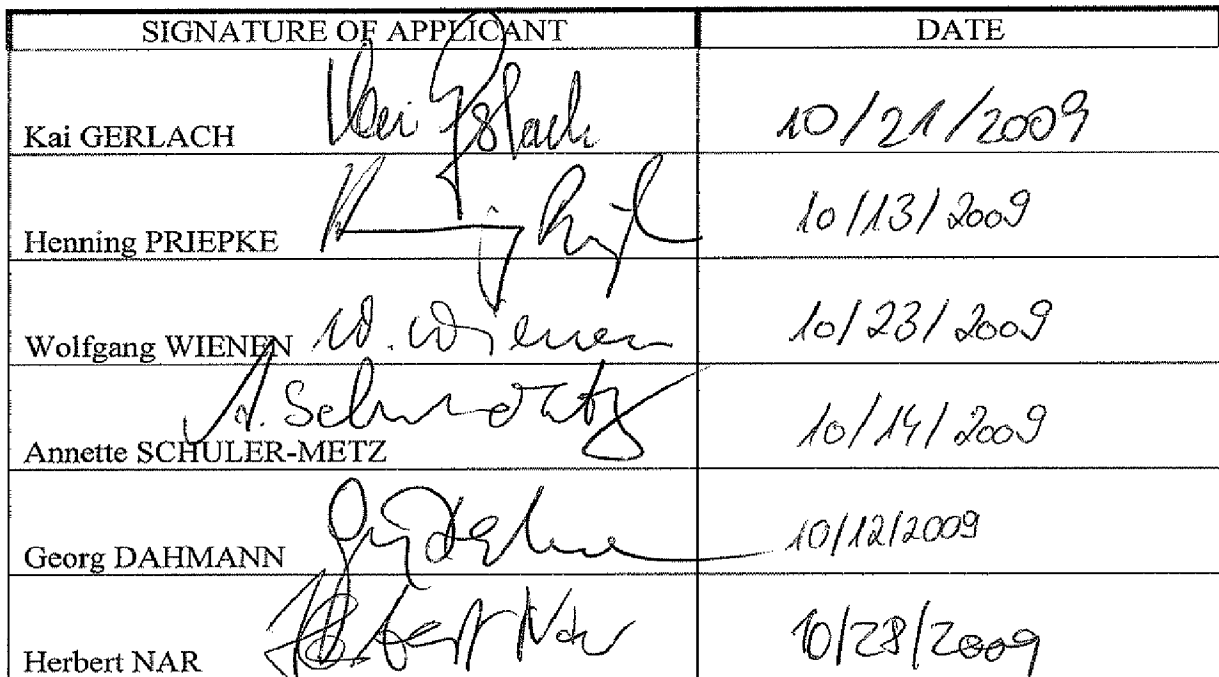 SIGNATURE OF APPLICANT DATE
Kai GERLACH Kai Gerlach 10/21/2009
Henning PRIEPKE 10/13/2009
Wolfgang WIENEN W. Wienen 10/23/2009
Annette SCHULER-METZ 10/14/2009
Georg DAHMANN 10/12/2009
Herbert NAR Herbert Nar 10/28/2009